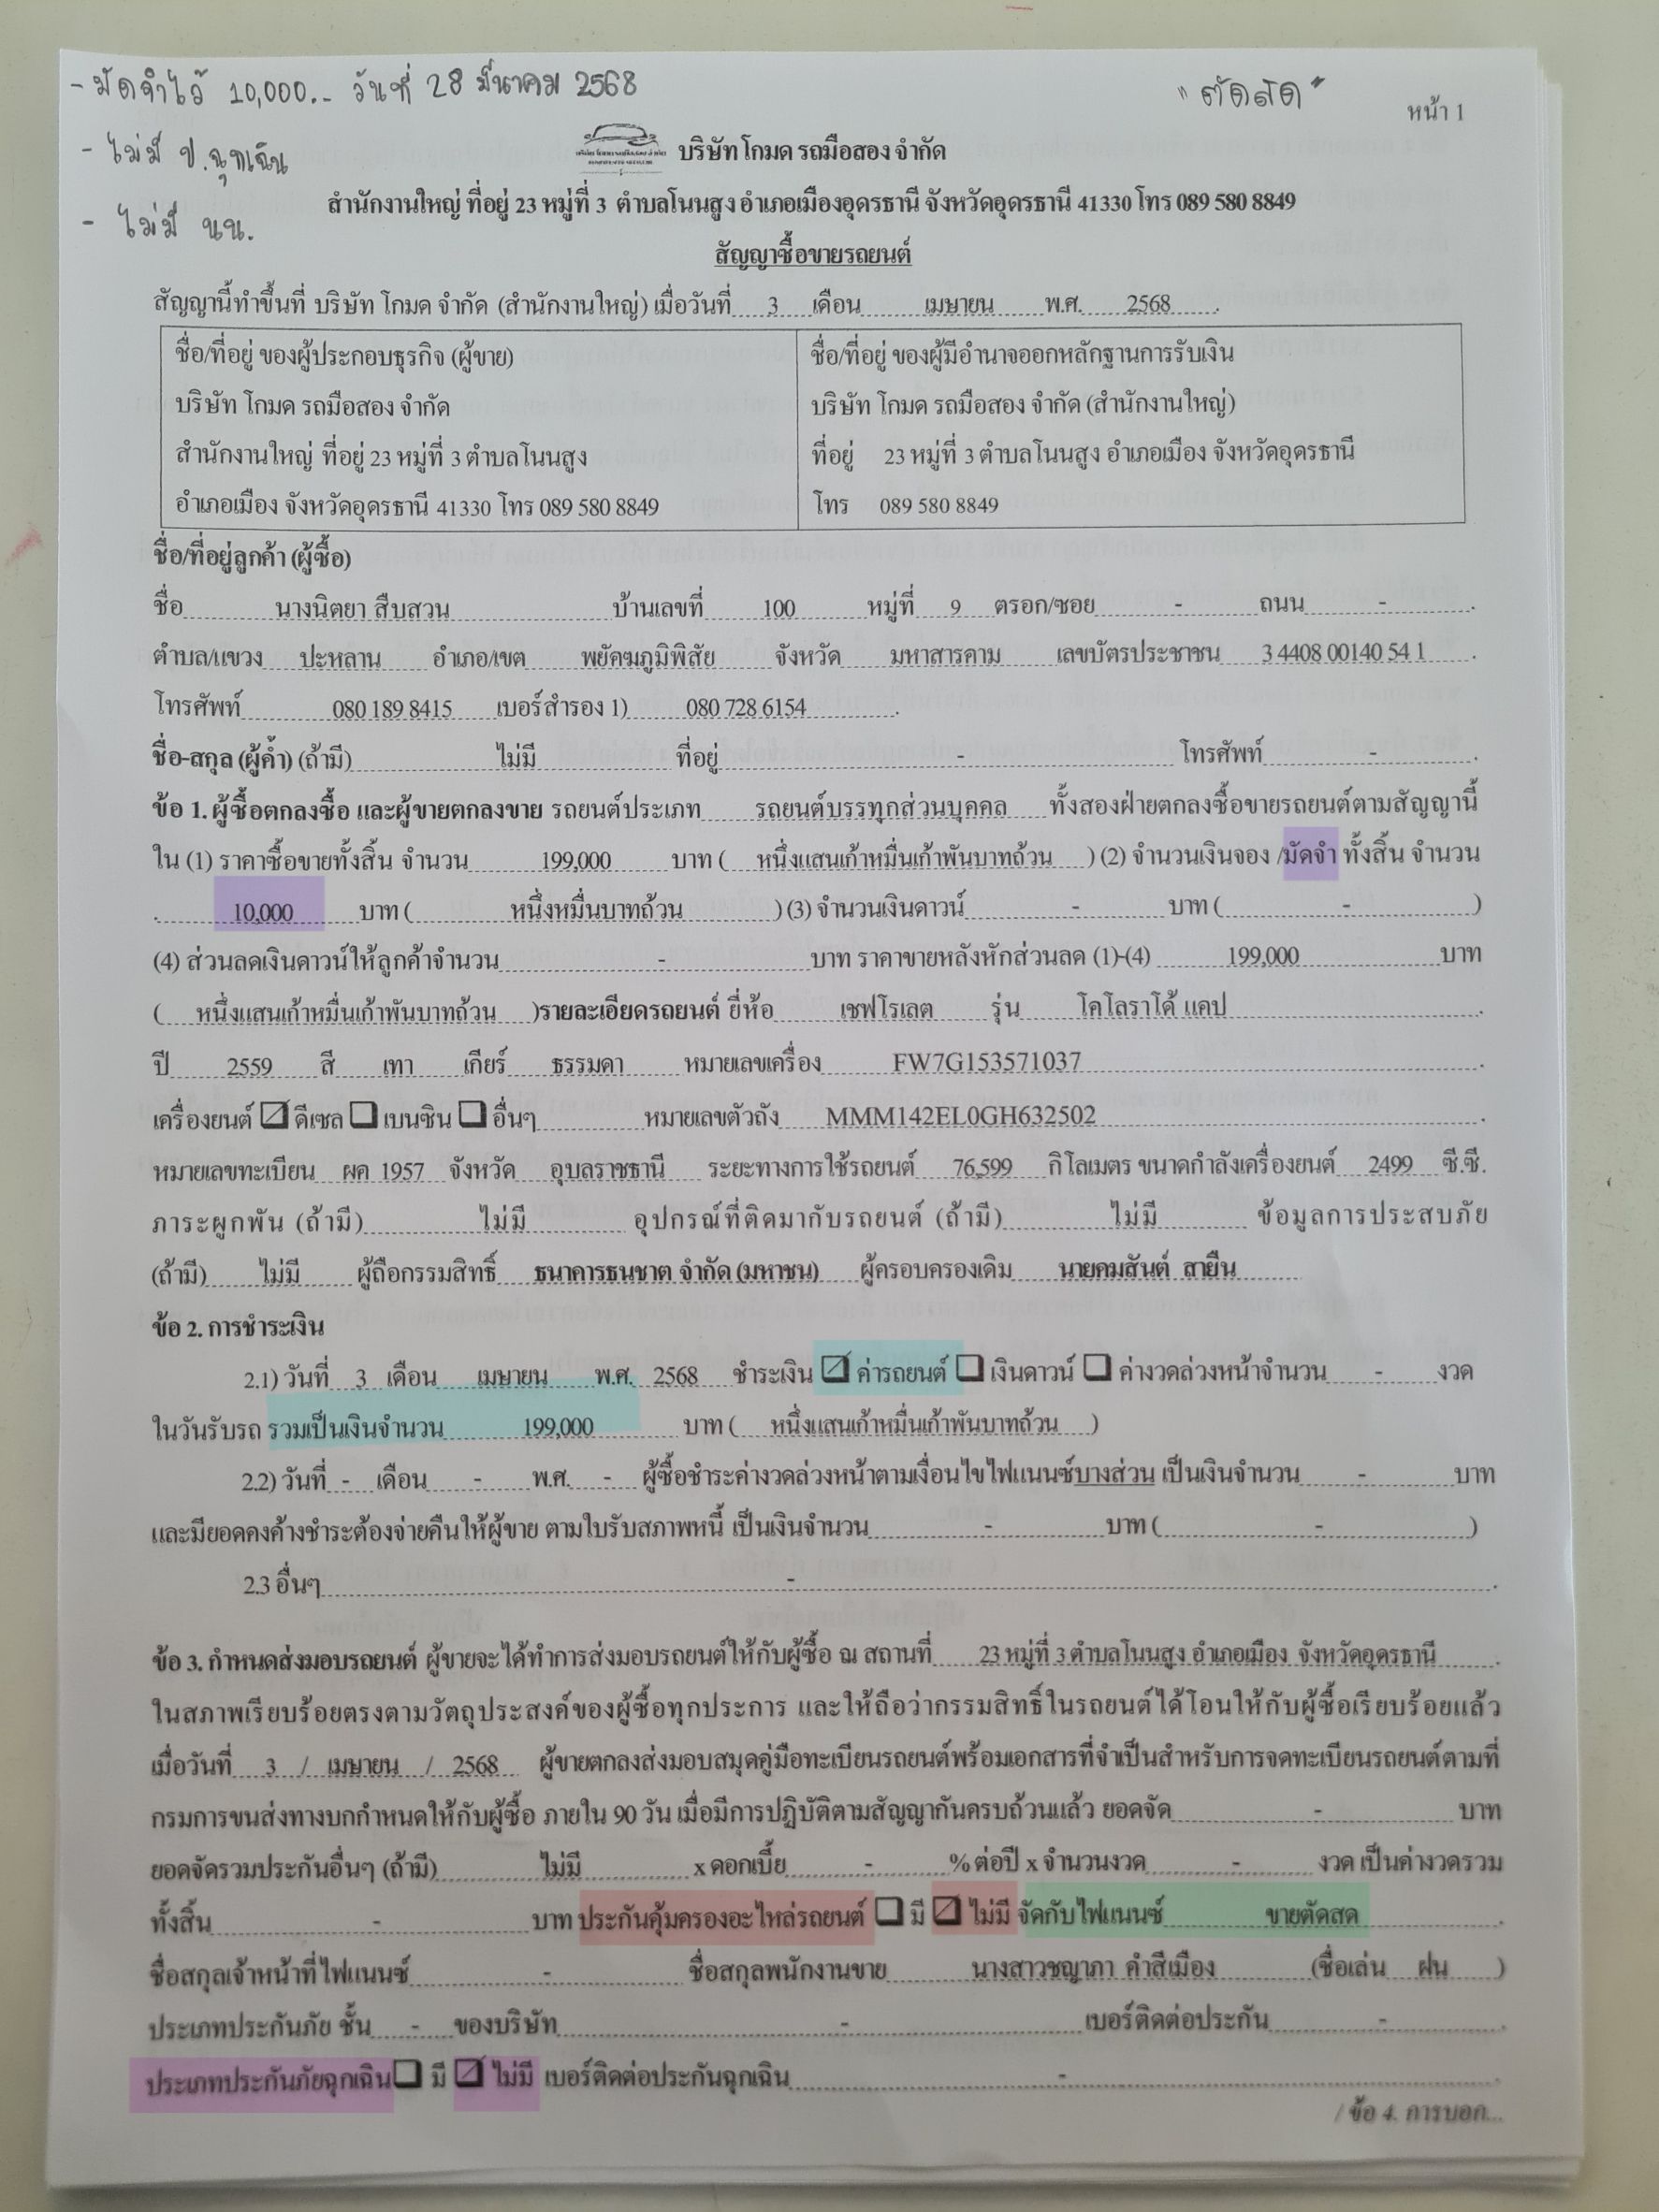 - มัดจำไว้ 10,000.- วันที่ 28 มีนาคม 2568
"ตัดสด"
หน้า 1
- ไม่มี ป.ฉุกเฉิน
บริษัท โกมด รถมือสอง จำกัด
- ไม่มี นน.
สำนักงานใหญ่ ที่อยู่ 23 หมู่ที่ 3 ตำบลโนนสูง อำเภอเมืองอุดรธานี จังหวัดอุดรธานี 41330 โทร 089 580 8849
สัญญาซื้อขายรถยนต์
สัญญานี้ทำขึ้นที่ บริษัท โกมด จำกัด (สำนักงานใหญ่) เมื่อวันที่ 3 เดือน เมษายน พ.ศ. 2568
ชื่อ/ที่อยู่ ของผู้ประกอบธุรกิจ (ผู้ขาย)
บริษัท โกมด รถมือสอง จำกัด
สำนักงานใหญ่ ที่อยู่ 23 หมู่ที่ 3 ตำบลโนนสูง
อำเภอเมือง จังหวัดอุดรธานี 41330 โทร 089 580 8849
ชื่อ/ที่อยู่ ของผู้มีอำนาจออกหลักฐานการรับเงิน
บริษัท โกมด รถมือสอง จำกัด (สำนักงานใหญ่)
ที่อยู่ 23 หมู่ที่ 3 ตำบลโนนสูง อำเภอเมือง จังหวัดอุดรธานี
โทร 089 580 8849
ชื่อ/ที่อยู่ลูกค้า (ผู้ซื้อ)
ชื่อ นางนิตยา สืบสวน บ้านเลขที่ 100 หมู่ที่ 9 ตรอก/ซอย - ถนน -
ตำบล/แขวง ปะหลาน อำเภอ/เขต พยัคฆภูมิพิสัย จังหวัด มหาสารคาม เลขบัตรประชาชน 3 4408 00140 54 1
โทรศัพท์ 080 189 8415 เบอร์สำรอง 1) 080 728 6154
ชื่อ-สกุล (ผู้ค้ำ) (ถ้ามี) ไม่มี ที่อยู่ - โทรศัพท์ -
ข้อ 1. ผู้ซื้อตกลงซื้อ และผู้ขายตกลงขาย รถยนต์ประเภท รถยนต์บรรทุกส่วนบุคคล ทั้งสองฝ่ายตกลงซื้อขายรถยนต์ตามสัญญานี้
ใน (1) ราคาซื้อขายทั้งสิ้น จำนวน 199,000 บาท ( หนึ่งแสนเก้าหมื่นเก้าพันบาทถ้วน ) (2) จำนวนเงินจอง /มัดจำ ทั้งสิ้น จำนวน
10,000 บาท ( หนึ่งหมื่นบาทถ้วน ) (3) จำนวนเงินดาวน์ - บาท ( - )
(4) ส่วนลดเงินดาวน์ให้ลูกค้าจำนวน - บาท ราคาขายหลังหักส่วนลด (1)-(4) 199,000 บาท
( หนึ่งแสนเก้าหมื่นเก้าพันบาทถ้วน )รายละเอียดรถยนต์ ยี่ห้อ เชฟโรเลต รุ่น โคโลราโด้ แคป
ปี 2559 สี เทา เกียร์ ธรรมดา หมายเลขเครื่อง FW7G153571037
เครื่องยนต์ ☑ ดีเซล ☐ เบนซิน ☐ อื่นๆ หมายเลขตัวถัง MMM142EL0GH632502
หมายเลขทะเบียน ผค 1957 จังหวัด อุบลราชธานี ระยะทางการใช้รถยนต์ 76,599 กิโลเมตร ขนาดกำลังเครื่องยนต์ 2499 ซี.ซี.
ภาระผูกพัน (ถ้ามี) ไม่มี อุปกรณ์ที่ติดมากับรถยนต์ (ถ้ามี) ไม่มี ข้อมูลการประสบภัย
(ถ้ามี) ไม่มี ผู้ถือกรรมสิทธิ์ ธนาคารธนชาต จำกัด (มหาชน) ผู้ครอบครองเดิม นายคมสันต์ สายืน
ข้อ 2. การชำระเงิน
2.1) วันที่ 3 เดือน เมษายน พ.ศ. 2568 ชำระเงิน ☑ ค่ารถยนต์ ☐ เงินดาวน์ ☐ ค่างวดล่วงหน้าจำนวน - งวด
ในวันรับรถ รวมเป็นเงินจำนวน 199,000 บาท ( หนึ่งแสนเก้าหมื่นเก้าพันบาทถ้วน )
2.2) วันที่ - เดือน - พ.ศ. - ผู้ซื้อชำระค่างวดล่วงหน้าตามเงื่อนไขไฟแนนซ์บางส่วน เป็นเงินจำนวน - บาท
และมียอดคงค้างชำระต้องจ่ายคืนให้ผู้ขาย ตามใบรับสภาพหนี้ เป็นเงินจำนวน - บาท ( - )
2.3 อื่นๆ -
ข้อ 3. กำหนดส่งมอบรถยนต์ ผู้ขายจะได้ทำการส่งมอบรถยนต์ให้กับผู้ซื้อ ณ สถานที่ 23 หมู่ที่ 3 ตำบลโนนสูง อำเภอเมือง จังหวัดอุดรธานี
ในสภาพเรียบร้อยตรงตามวัตถุประสงค์ของผู้ซื้อทุกประการ และให้ถือว่ากรรมสิทธิ์ในรถยนต์ได้โอนให้กับผู้ซื้อเรียบร้อยแล้ว
เมื่อวันที่ 3 / เมษายน / 2568 ผู้ขายตกลงส่งมอบสมุดคู่มือทะเบียนรถยนต์พร้อมเอกสารที่จำเป็นสำหรับการจดทะเบียนรถยนต์ตามที่
กรมการขนส่งทางบกกำหนดให้กับผู้ซื้อ ภายใน 90 วัน เมื่อมีการปฏิบัติตามสัญญากันครบถ้วนแล้ว ยอดจัด - บาท
ยอดจัดรวมประกันอื่นๆ (ถ้ามี) ไม่มี x ดอกเบี้ย - % ต่อปี x จำนวนงวด - งวด เป็นค่างวดรวม
ทั้งสิ้น - บาท ประกันคุ้มครองอะไหล่รถยนต์ ☐ มี ☑ ไม่มี จัดกับไฟแนนซ์ ขายตัดสด
ชื่อสกุลเจ้าหน้าที่ไฟแนนซ์ - ชื่อสกุลพนักงานขาย นางสาวชญาภา คำสีเมือง (ชื่อเล่น ฝน )
ประเภทประกันภัย ชั้น - ของบริษัท - เบอร์ติดต่อประกัน -
ประเภทประกันภัยฉุกเฉิน ☐ มี ☑ ไม่มี เบอร์ติดต่อประกันฉุกเฉิน -
/ ข้อ 4. การบอก...